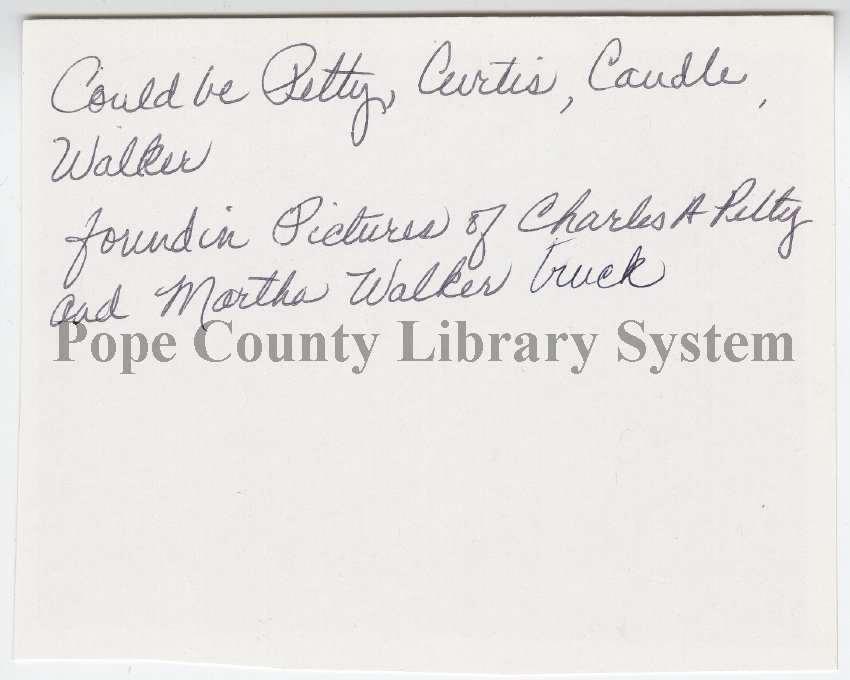 Could be Petty, Curtis, Caudle,
Walker
found in Pictures of Charles A Petty
and Martha Walker truck
Pope County Library System